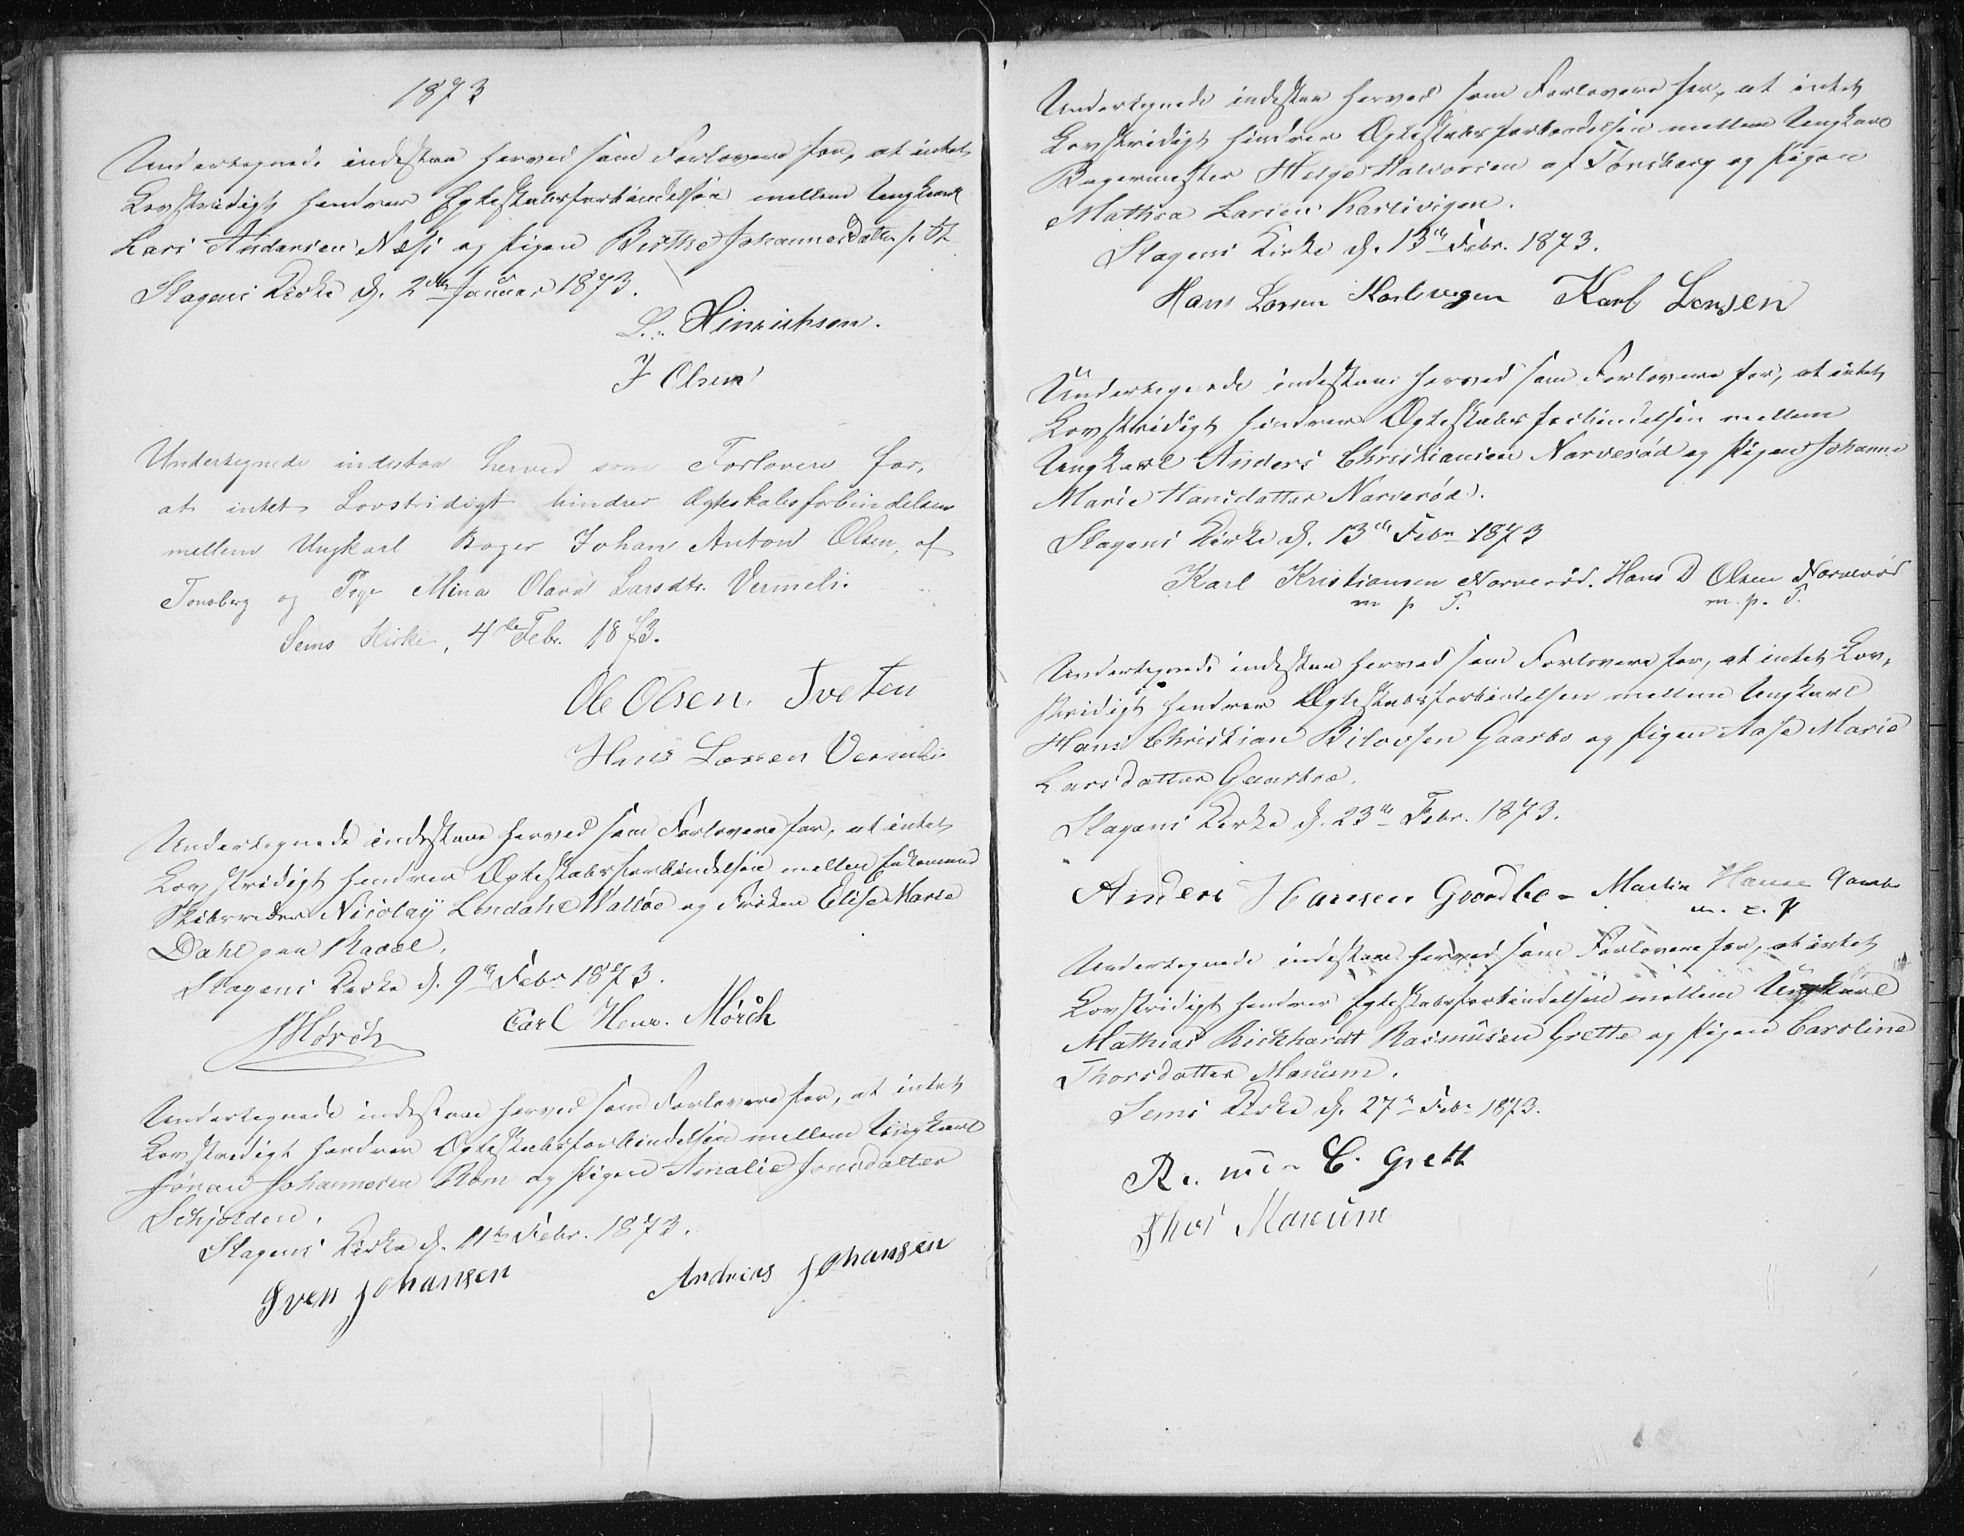 1873
Undertegnede indestaa herved som Forlovere for, at intet
Lovstridigt hindrer Egteskabsforbindelsen mellem Ungkarl
Lars Andersen Næs og Pigen Birthe Johannesdatter
Slagens Kirke d. 2den Januar 1873.
L. Hinrichsen.
J Olsen
Undertegnede indestaa herved som Forlovere for,
at intet Lovstridigt hindrer Ægteskabsforbindelsen
mellem Ungkarl Bager Johan Anton Olsen, af
Tønsberg og Pige Mina Olava Larsdtr. Vermeli.
Sems Kirke, 4de Febr. 1873.
Ole Olsen. Tveten
Hans Larsen Vermeli
Undertegnede indestaae herved som Forlovere for, at intet
Lovstridigt hindrer Ægteskabsforbindelsen mellem Enkemand
Skibsreder Nicolay Lendahl Walløe og Frøken Elise Marie
Dahl paa Radal.
Slagens Kirke d. 9de Febr 1873.
Mørch Carl Henr. Mørch
Undertegnede indestaae herved som Forlovere for, at intet
Lovstridigt hindrer Ægteskabsforbindelsen mellem Ungkarl
Johan Johannesen Rom og Pigen Amalie Jonsdatter
Schjolden.
Slagens Kirke d. 11te Febr. 1873.
Sven Johansen Andreas Johansen
Undertegnede indestaa herved som Forlovere for, at intet
Lovstridigt hindrer Ægteskabsforbindelsen mellem Ungkarl
Bagermester Helge Halvorsen af Tønsberg og Pigen
Mathea Larsen Karlsvigen.
Slagens Kirke d. 13de Febr. 1873.
Hans Larsen Karlsvigen Karl Lensen
Undertegnede indestaae herved som Forlovere for, at intet
Lovstridigt hindrer Ægteskabsforbindelsen mellem
Ungkarl Anders Christiansen Narverød og Pigen Johanne
Marie Hansdatter Narverød.
Slagens Kirke d. 13de Febr 1873
Karl Kristiansen Narverød. Hans D Olsen Narverød
m p P. m. p. P.
Undertegnede indestaa herved som Forlovere for, at intet Lov-
stridigt hindrer Ægteskabsforbindelsen mellem Ungkarl
Hans Christian Gaarbo og Pigen Aase Marie
Larsdatter Gaarboe.
Slagens Kirke d. 23de Febr. 1873.
Anders Hansen Gaardbo - Martin Hansen Gaarbo
Undertegnede indestaae herved som Forlovere for, at intet
Lovstridigt hindrer Egteskabsforbindelsen mellem Ungkarl
Mathias Rickhardt Rasmussen Grette og Pigen Caroline
Thorsdatter Manum.
Sems Kirke d. 27de Febr 1873.
C. Grett
Thor Manum